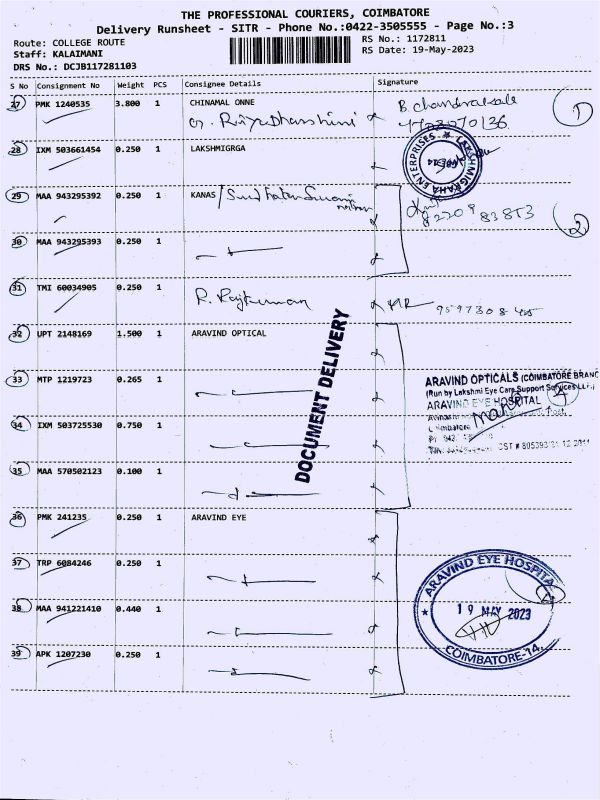 THE PROFESSIONAL COURIERS, COIMBATORE
Delivery Runsheet - SITR - Phone No.:0422-3505555 - Page No.:3
Route: COLLEGE ROUTE
Staff: KALAIMANI
DRS No.: DCJB117281103
RS No.: 1172811
RS Date: 19-May-2023
S No Consignment No Weight PCS Consignee Details Signature
27 PMK 1240535 3.800 1 CHINAMAL ONNE
28 IXM 503661454 0.250 1 LAKSHMIGRGA
LAKSHMIGRAHA ENTERPRISES
29 MAA 943295392 0.250 1 KANAS/
82209 83853
2
30 MAA 943295393 0.250 1
31 TMI 60034905 0.250 1 R. Rajkumar
32 UPT 2148169 1.500 1 ARAVIND OPTICAL
33 MTP 1219723 0.265 1
34 IXM 503725530 0.750 1
35 MAA 570502123 0.100 1
DOCUMENT DELIVERY
ARAVIND OPTICALS (COIMBATORE BRANC
(Run by Lakshmi Eye Care Support Services LLP.)
ARAVIND EYE HOSPITAL
36 PMK 241235 0.250 1 ARAVIND EYE
37 TRP 6084246 0.250 1
38 MAA 941221410 0.440 1
39 APK 1207230 0.250 1
ARAVIND EYE HOSPITA
19 MAY 2023
COIMBATORE-14.